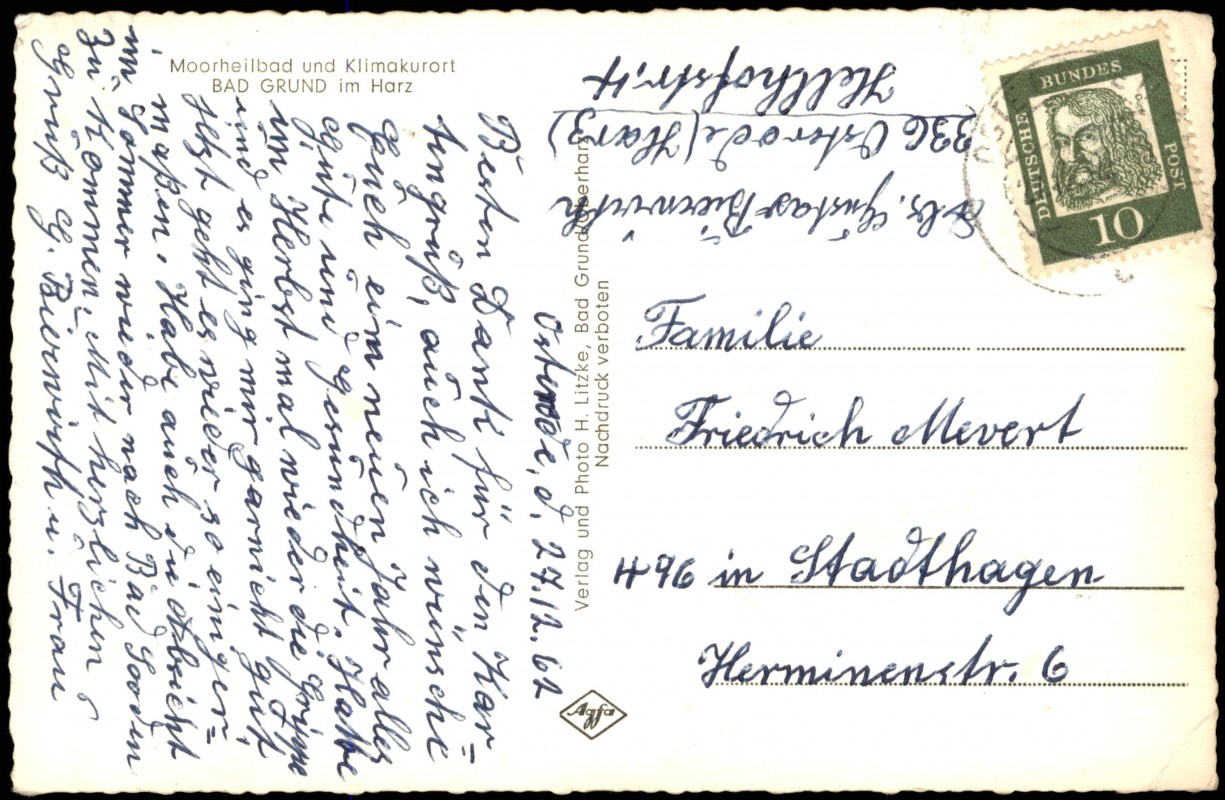 Moorheilbad und Klimakurort
BAD GRUND im Harz
Osterode, d. 27.12.62
Besten Dank für den Kar=
tengrüß, auch ich wünsche
Euch ein neues Jahr alles
Gute und Gesundheit. Hatte
im Herbst mal wieder die Grippe
und es ging mir garnicht gut,
Jetzt geht es wieder so einger=
maßen. Habe auch die Absicht
im Sommer wieder nach Bad Sooden
zu kommen, Mit herzlichen
Gruß G. Bierwirth u. Frau
Verlag und Photo H. Litzke, Bad Grund/Oberharz
Nachdruck verboten
Abs. Gustav Bierwirth
336 Osterode (Harz)
Hellhofstr. 4
DEUTSCHE BUNDES POST
10
Familie
Friedrich Mevert
496 in Stadthagen
Herminenstr. 6
Agfa